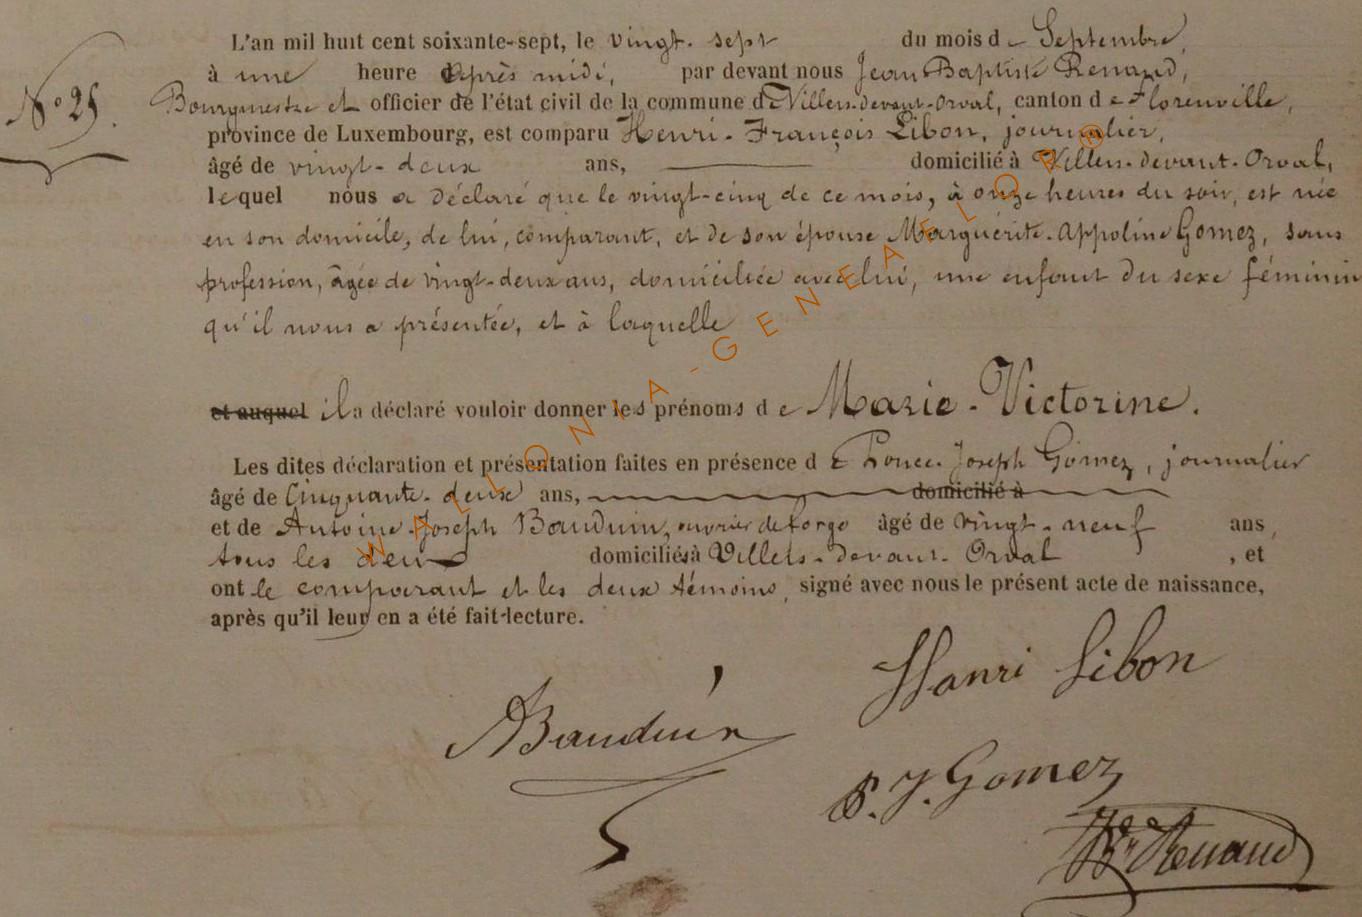 L'an mil huit cent soixante-sept, le vingt-sept du mois de Septembre,
à une heure après midi, par devant nous Jean Baptiste Renaud,
N° 25. Bourgmestre et officier de l'état civil de la commune de Villers-devant-Orval, canton de Florenville,
province de Luxembourg, est comparu Henri-François Libon, journalier,
âgé de vingt-deux ans, domicilié à Villers-devant-Orval,
lequel nous a déclaré que le vingt-cinq de ce mois, à onze heures du soir, est née
en son domicile, de lui, comparant, et de son épouse Marguérite-Appoline Gomez, sans
profession, âgée de vingt-deux ans, domiciliée avec lui, une enfant du sexe féminin
qu'il nous a présentée, et à laquelle
et auquel il a déclaré vouloir donner les prénoms de Marie-Victorine.
Les dites déclaration et présentation faites en présence de Ponce-Joseph Gomez, journalier
âgé de cinquante-deux ans, domicilié à
et de Antoine-Joseph Bauduin, ouvrier de forge âgé de vingt-neuf ans,
tous les deux domiciliés à Villers-devant-Orval, et
ont le comparant et les deux témoins, signé avec nous le présent acte de naissance,
après qu'il leur en a été fait lecture.
Hanri Libon
ABauduin
P. J. Gomez
Renaud
WALLONIA-GENEAELOR®